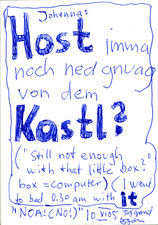 Johanna:
Host imma
noch ned gnuag
von dem
Kastl?
("Still not enough
with that little box?"
box = computer) (I went
to bed 0.30 am with it
"NOA! (NO!)" 10 VI05